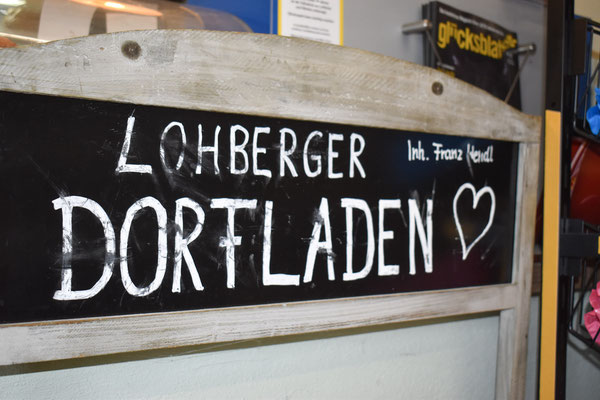 glücksblatt
LOHBERGER
Inh. Franz
DORFLADEN